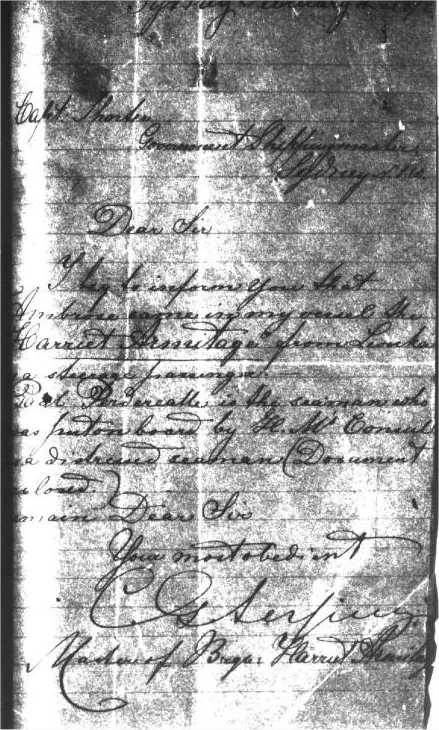 Sydney
Capt.
Government Shippingmaster,
Sydney N.S.W.
Dear Sir
I beg to inform you that
Ambrose came in my vessel the
Harriet Armitage from
a steerage passenger.
is the seaman who
as put on board by H. M's Consul
a distressed seaman (Document
closed)
main Dear Sir
Your most obedient
Master of Brig Harriet Armitage